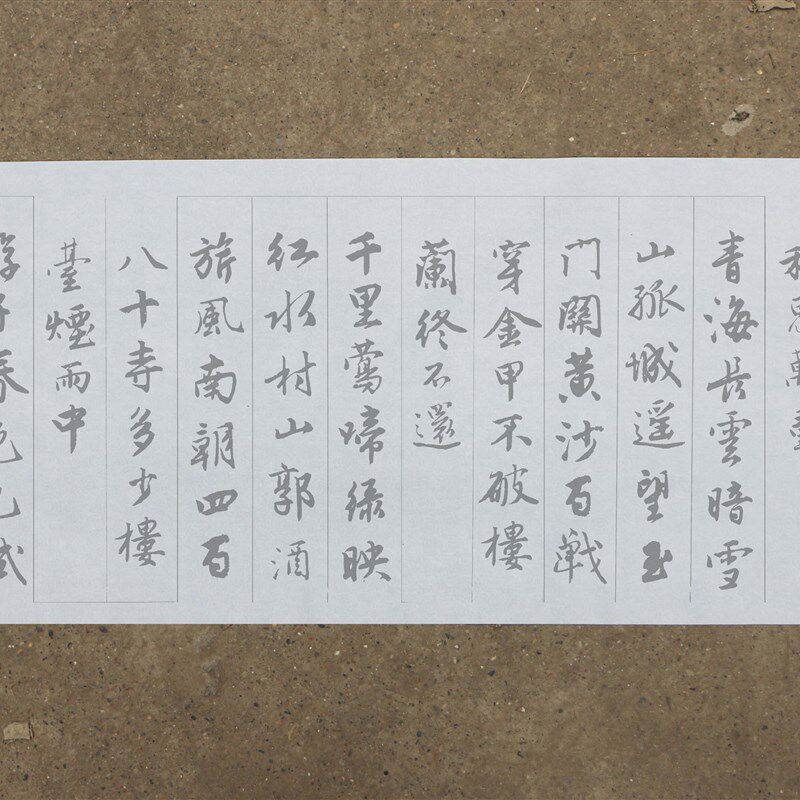 青海長雲暗雪
山孤城遥望玉
門關黄沙百戰
穿金甲不破樓
蘭終不還
千里鶯啼緑映
紅水村山郭酒
旂風南朝四百
八十寺多少樓
臺煙雨中